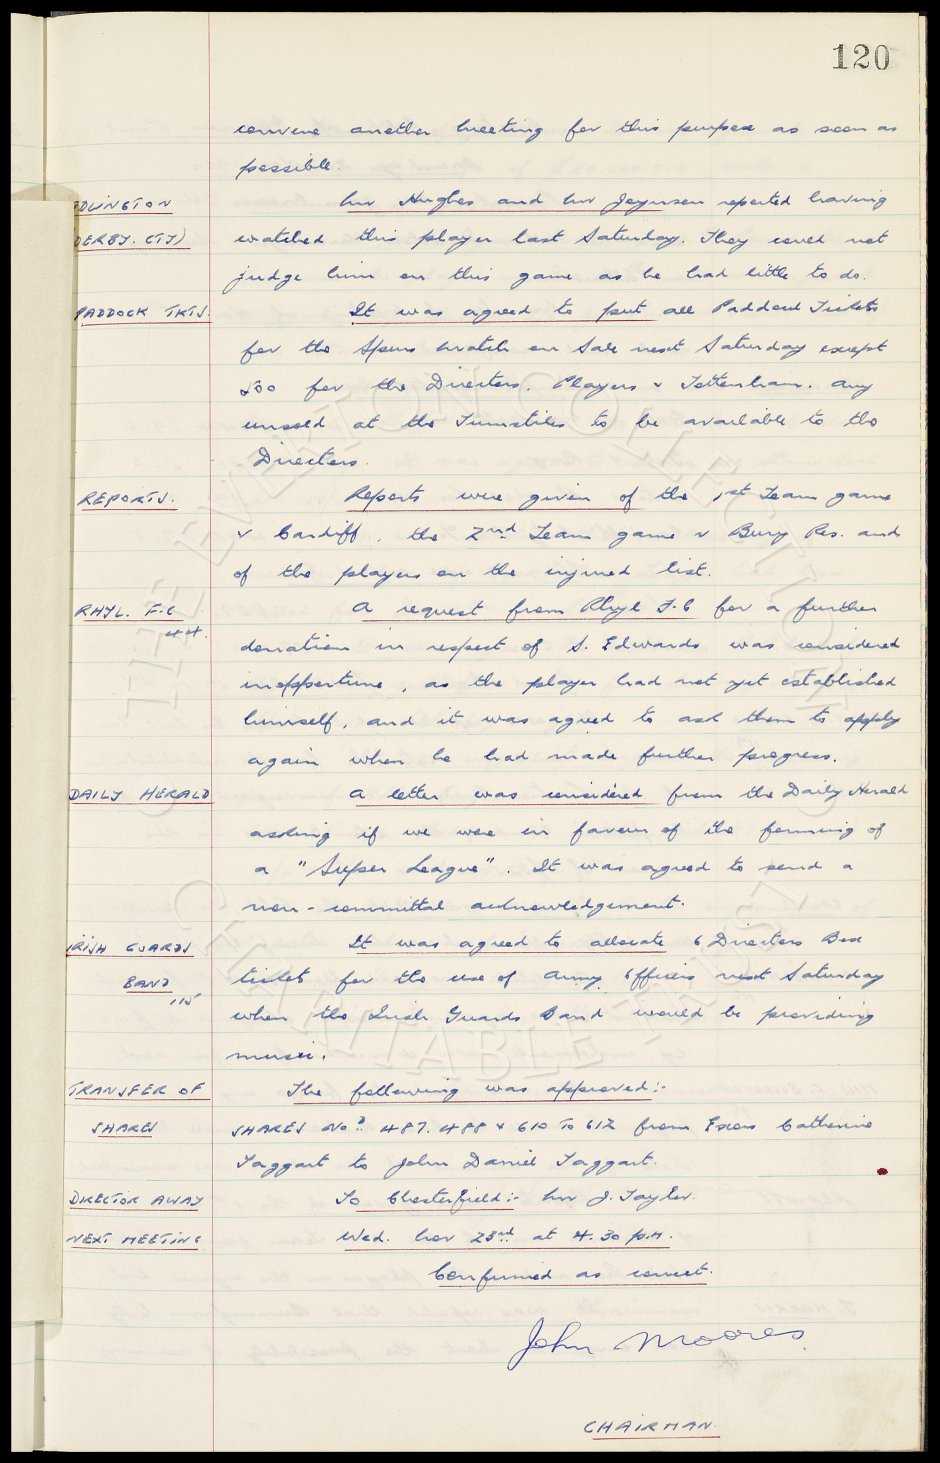 120
convene another meeting for this purpose as soon as
possible.
ADLINGTON
DERBY. CTY)
Mr Hughes and Mr Joynson reported having
watched this player last Saturday. They could not
judge him on this game as he had little to do.
PADDOCK TKTS.
It was agreed to put all Paddock Tickets
for the Spurs match on Sale next Saturday except
500 for the Directors, Players & Tottenham. Any
unsold at the Turnstiles to be available to the
Directors.
REPORTS.
Reports were given of the 1st Team game
v Cardiff, the 2nd Team game v Bury Res. and
of the players on the injured list.
RHYL. F.C
44.
A request from Rhyl F.C for a further
donation in respect of S. Edwards was considered
inopportune, as the player had not yet established
himself, and it was agreed to ask them to apply
again when he had made further progress.
DAILY HERALD
A letter was considered from the Daily Herald
asking if we were in favour of the forming of
a "Super League". It was agreed to send a
non-committal acknowledgement.
IRISH GUARDS
BAND
115
It was agreed to allocate 6 Directors Box
tickets for the use of Army Officers next Saturday
when the Irish Guards Band would be providing
music.
TRANSFER OF
SHARES
The following was approved:-
SHARES Nos 487. 488 & 610 TO 612 from Exors Catherine
Taggart to John Daniel Taggart.
DIRECTOR AWAY
To Chesterfield:- Mr J. Taylor.
NEXT MEETING
Wed. Nov 23rd at 4.30 p.m.
Confirmed as correct.
John Moores
CHAIRMAN.
THE EVERTON COLLECTION
CHARITABLE TRUST